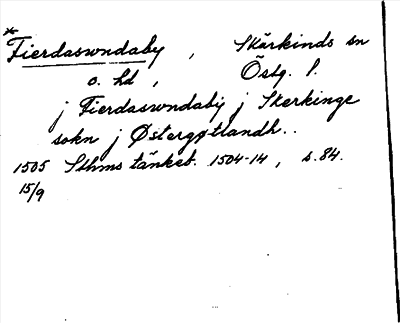 *
Fierdaswndaby, Skärkinds sn
o. hd, Östg. l.
j Fierdaswndaby j Skerkinge
sokn j Østergøtlandh..
1505 Sthms tänkeb. 1504-14, s. 84.
15/9